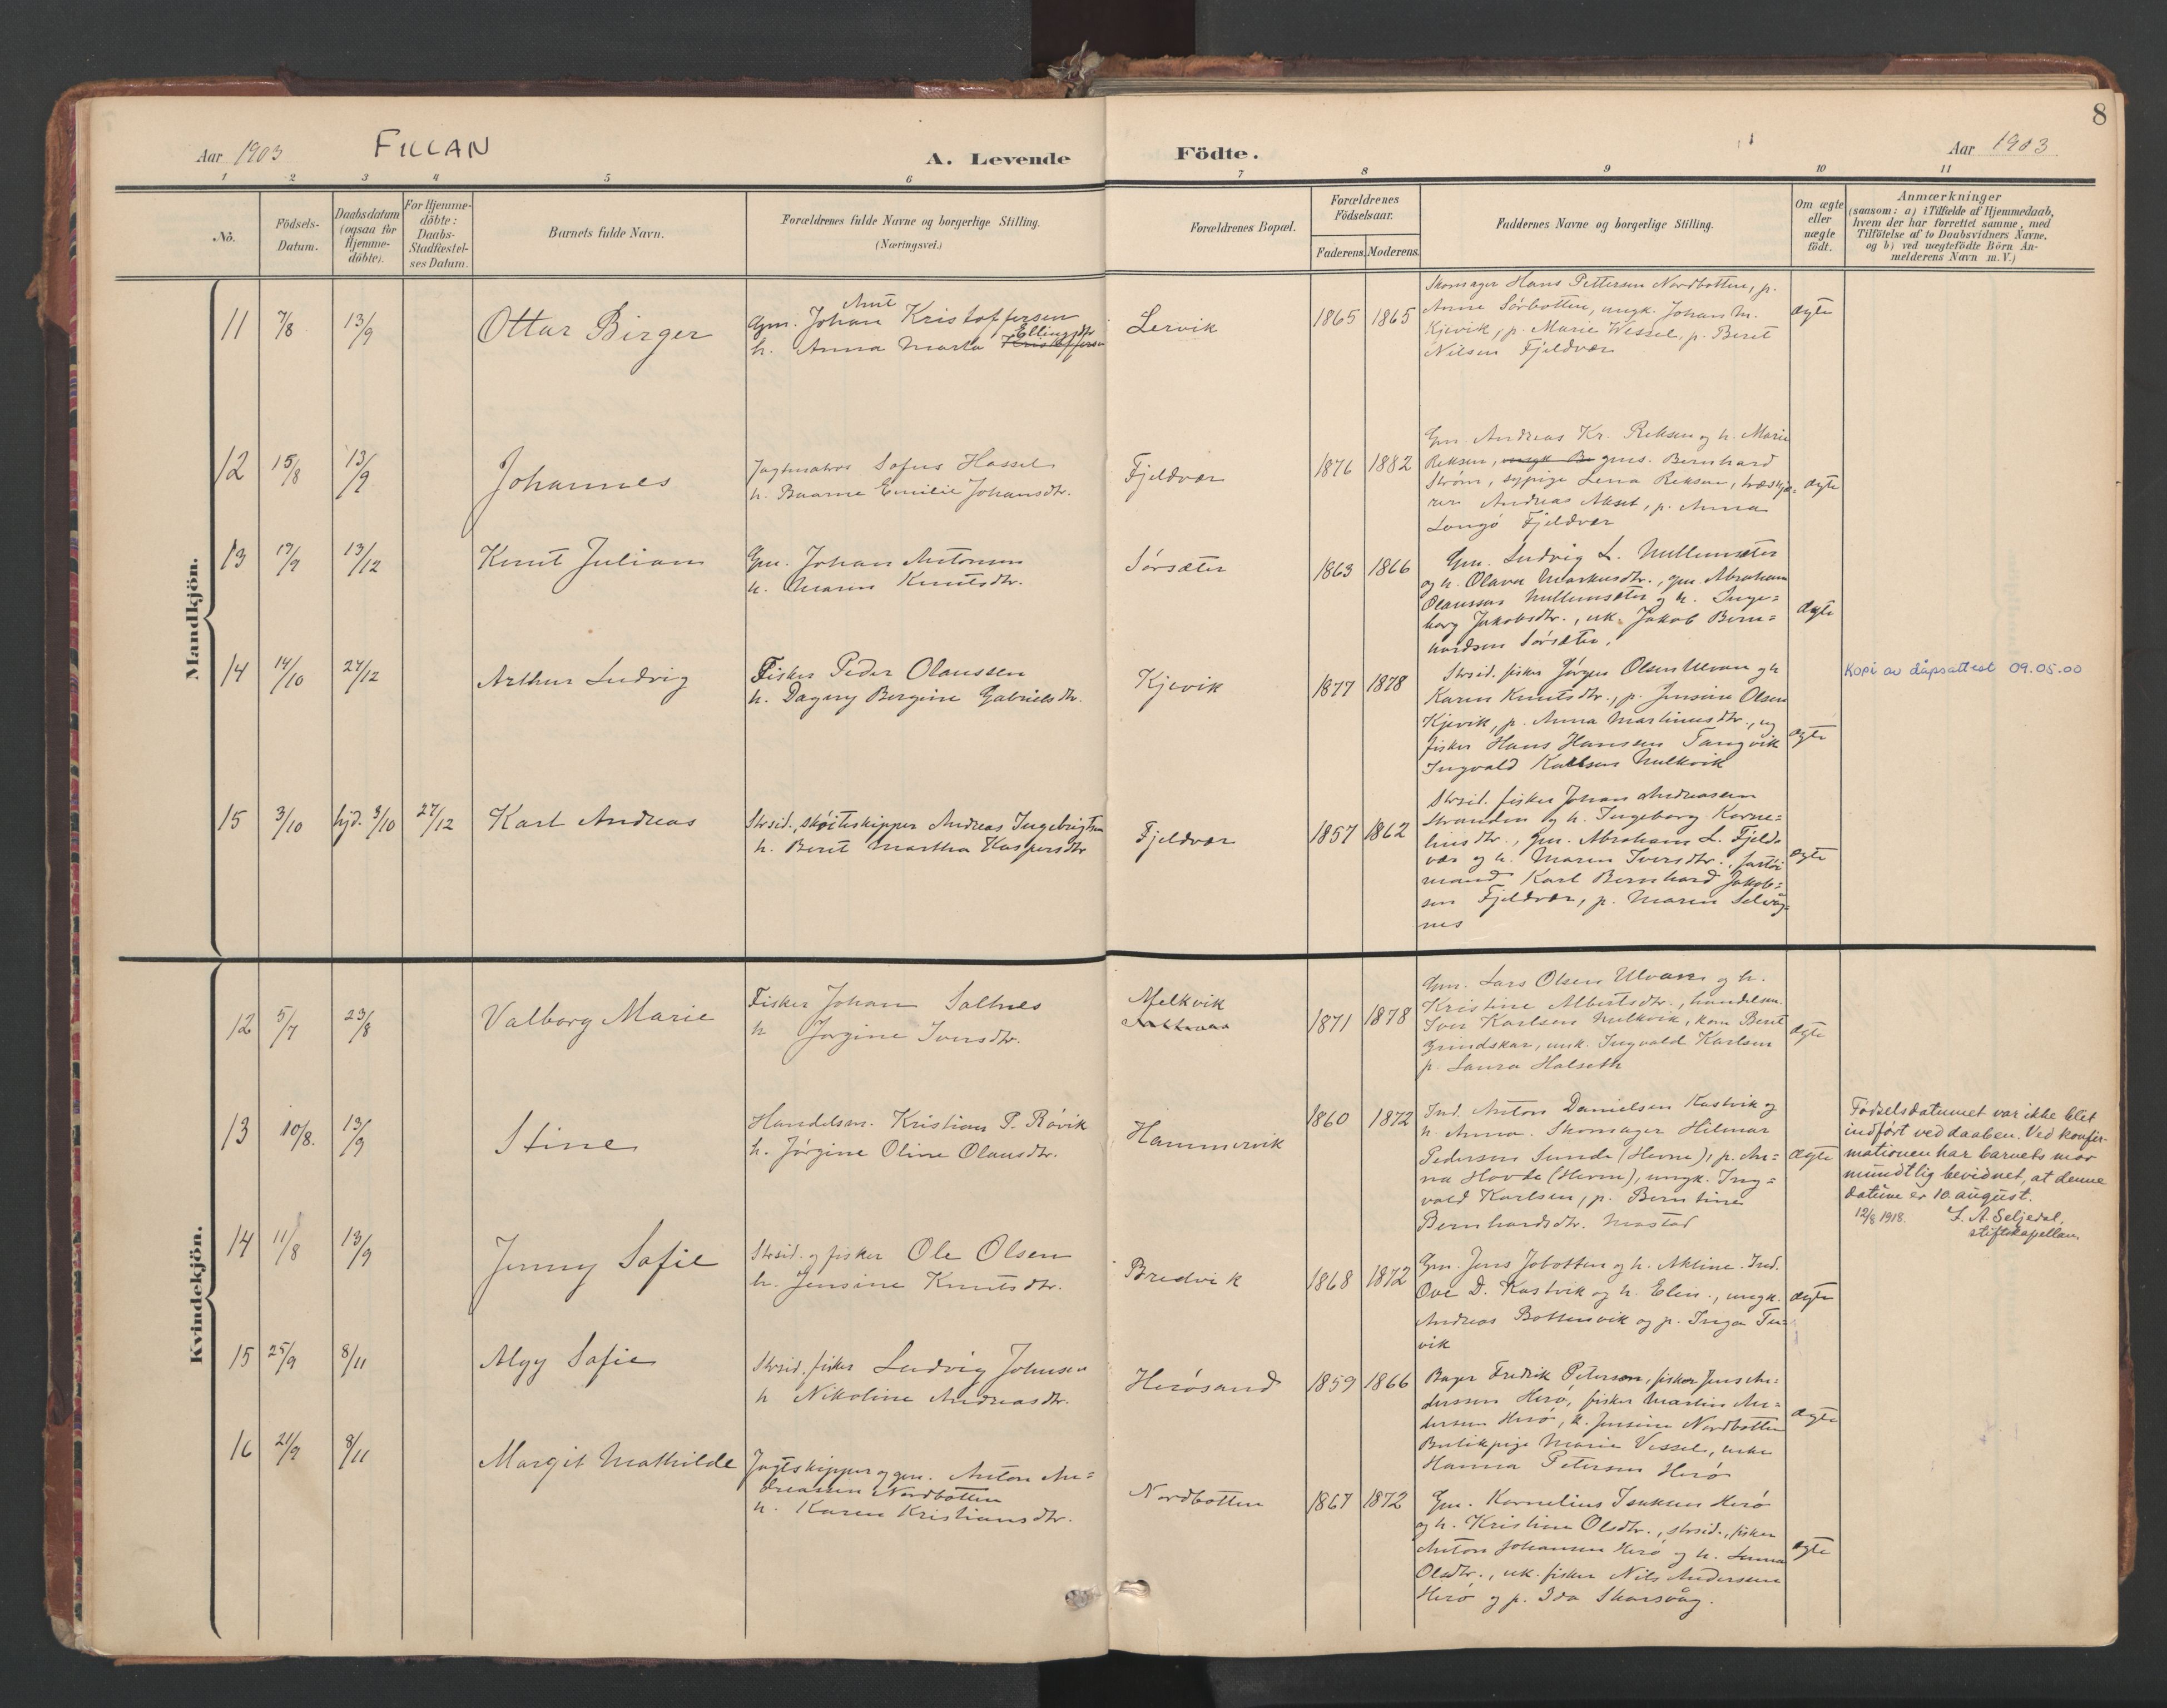 8
Aar 1903
FILLAN
A. Levende Födte.
Aar 1903
1 2 3 4 5 6 7 8 9 10 11
Nô.
Födsels-
Datum.
Daabsdatum
(ogsaa for
Hjemme-
döbte).
For Hjemme-
döbte:
Daabs-
Stadfestel-
ses Datum.
Barnets fulde Navn.
Forældrenes fulde Navne og borgerlige Stilling.
(Næringsvei.)
Forældrenes Bopæl.
Forældrenes
Födselsaar.
Faderens. Moderens.
Faddernes Navne og borgerlige Stilling.
Om ægte
eller
uægte
födt.
Anmærkninger
(saasom: a) i Tilfælde af Hjemmedaab,
hvem der har forrettet samme, med
Tilföielse af to Daabsvidners Navne,
og b) ved uægtefödte Börn An-
melderens Navn m. V.)
Mandkjön.
11 7/8 13/9 Ottar Birger
Arnt
Gm. Johan Kristoffersen
Ellingsdtr
h. Anna Marta Kristoffersen
Lervik 1865 1865
Skomager Hans Pettersen Nordbotten, p.
Anne Sørbotten, ungk. Johan M.
Kjevik, p. Marie Wessel, p. Beret
Nilsen Fjeldvær
ægte
12 15/8 13/9 Johannes
Sofus Hassel
h. Emilie Johansdtr.
Fjeldvær 1876 1882
Gm. Andreas Kr. Reksen og h. Marie
Reksen, gms. Bernhard
Strøm, sypige Lena Reksen, træskjæ=
rer Andreas Akset, p. Anna
Fjeldvær
ægte
13 19/9 13/12 Knut Julian
Gm. Johan Antonsen
h. Maren Knutsdtr.
Sørsæter 1863 1866
Gm. Ludvig L. Mellemsæter
og h. Olava Markusdtr., gm. Abraham
Olaussen Mellemsæter og h. Inge=
borg Jakobsdtr., uk. Jakob Bern=
hardsen Sørsæter.
ægte
14 14/10 27/12 Arthur Ludvig
Fisker Peder Olaussen
h. Dagny Bergine Gabrielsdtr.
Kjevik 1877 1878
Strsid. fisker Jørgen Olsen Ulvan og h
Karen Knutsdtr., p. Jensine Olsen
Kjevik, p. Anna Martinusdtr., ug
fisker Hans Hansen Tangvik
Ingvald Karlsen Melkvik
ægte
Kopi av dåpsattest 09.05.00
15 3/10 hjd. 3/10 27/12 Karl Andreas
Strsid., skøiteskipper Andreas Ingebrigtsen
h. Beret Martha Kaspersdtr
Fjeldvær 1857 1862
Strsid. fisker Johan Andreasen
Stranden og h. Ingeborg Korne=
liusdtr., gm. Abraham L. Fjeld=
vær og h. Maren Iversdtr., fartøi
mand Karl Bernhard Jakob=
sen Fjeldvær, p. Maren Selvåg=
nes
ægte
Kvindekjön.
12 5/7 23/8 Valborg Marie
Fisker Johan Saltnes
h Jørgine Iversdtr.
Melkvik
Saltnes
1871 1878
Gm. Lars Olsen Ulvan og h.
Kristine Albertsdtr., handelsm.
Iver Karlsen Melkvik, kone Beret
Grindskar, unk. Ingvald Karlsen
p. Laura Halseth
ægte
13 10/8. 13/9 Stine
Handelsm. Kristian P. Røvik
h. Jørgine Oline Olausdtr.
Hammervik 1860 1872
Ind. Anton Danielsen Kastvik og
h. Anna. Skomager Hilmar
Pedersen Sunde (Hevne), p. An=
na Hovde (Hevne), ungk. Ing=
vald Karlsen, p. Berntine
Bernhardsdtr. Mastad
ægte
Fødselsdatumet var ikke blet
indført ved daaben. Ved konfir-
mationen har barnets mor
mundtlig bevidnet, at denne
datum er 10. august.
12/8 1918. I. A. Seljedal,
stiftskapellan.
14 11/8 13/9 Jenny Sofie
Strsid. og fisker Ole Olsen
h. Jensine Knutsdtr.
Bredvik 1868 1872
Gm. Jens Jøbotten og h. Aktine. Ind.
Ove D. Kastvik og h. Elen., ungk.
Andreas Bottenvik og p. Inga Tu=
vik
ægte
15 25/9 8/11 Algy Sofie
Strsid. fisker Ludvig Johnsen
h Nikoline Andreasdtr.
Herøsund 1859 1866
Bager Fredrik Petersen, fisker Jens An=
derssen Herø, fisker Martin An=
dersen Herø, k. Jensine Nordbotten
Butikpige Marie Vessel, enke
Hanna Petersen Herø
ægte
16 21/9 8/11 Margit Mathilde
Jagtskipper og gm. Anton An=
dreassen Nordbotten
h. Karen Kristiansdtr.
Nordbotten 1867 1872
Gm. Kornelius Isaksen Herø
og h. Kristine Olsdtr., strsid., fisker
Anton Johansen Herø og h.
Olsdtr., uk. fisker Nils Andersen
Herø og p. Ida Skarsvåg.
ægte